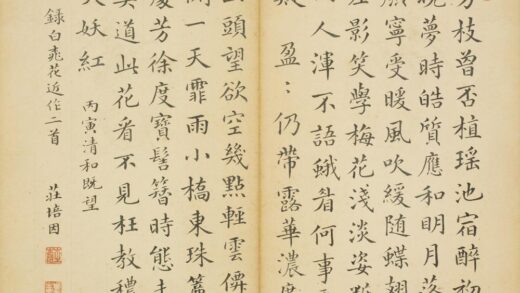 枝曾否植瑶池宿醉初
曉夢時皓質應和明月落
寧受暖風吹緩随蝶翅
差影笑學梅花淺淡姿
人渾不語 看何事
盈〻仍帶露華濃
頭望欲空幾點輕雲
一天霏雨小橋東珠
芳徐度寶髻簪時態
莫道此花看不見枉教穠
妖紅
丙寅清和既望
録白桃花近作二首 莊培因